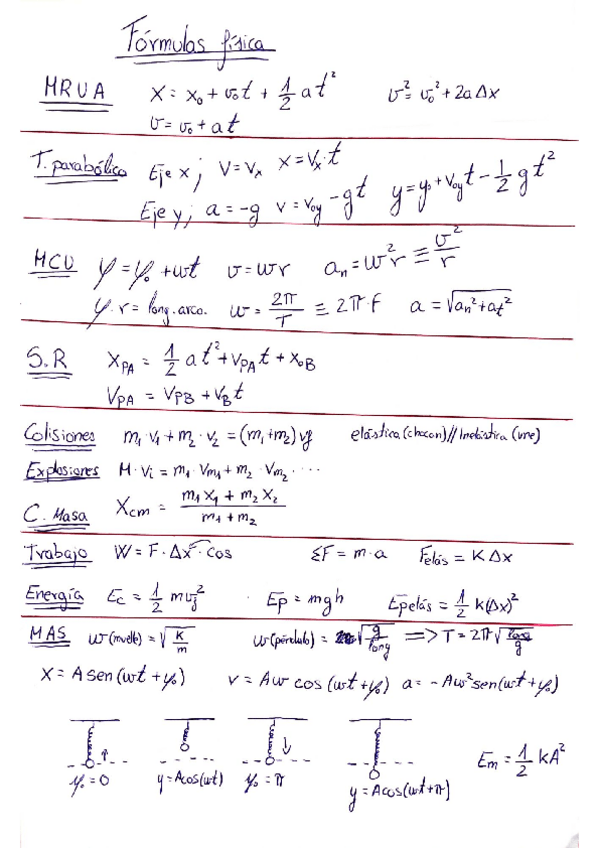 Fórmulas física
MRUA x = x₀ + v₀t + 1/2 at² v² = v₀² + 2aΔx
v = v₀ + at
T. parabólico Eje x; V = Vₓ x = Vₓ · t
Eje y; a = -g v = v₀y - gt y = y₀ + v₀y t - 1/2 gt²
MCU φ = φ₀ + ωt v = ωr aₙ = ω²r ≡ v²/r
φ · r = long. arco. ω = 2π/T ≡ 2π·F a = √(aₙ² + aₜ²)
S.R X_PA = 1/2 at² + V_PA t + X₀B
V_PA = V_PB + V_B t
Colisiones m₁·v₁ + m₂·v₂ = (m₁+m₂)vf elástica (chocan) // Inelástica (une)
Explosiones M·Vi = m₁·Vm₁ + m₂·Vm₂ ....
C. Masa Xcm = (m₁x₁ + m₂x₂)/(m₁ + m₂)
Trabajo W = F·Δx·cos ΣF = m·a Felás = KΔx
Energía Ec = 1/2 mv² Ep = mgh Epelás = 1/2 k(Δx)²
MAS ω(muelle) = √(k/m) ω(péndulo) = √(g/long) => T = 2π√(long/g)
x = A sen(ωt + φ₀) v = Aω cos(ωt + φ₀) a = -Aω² sen(ωt + φ₀)
φ₀ = 0 y = A cos(ωt) φ₀ = π y = A cos(ωt + π) Em = 1/2 kA²